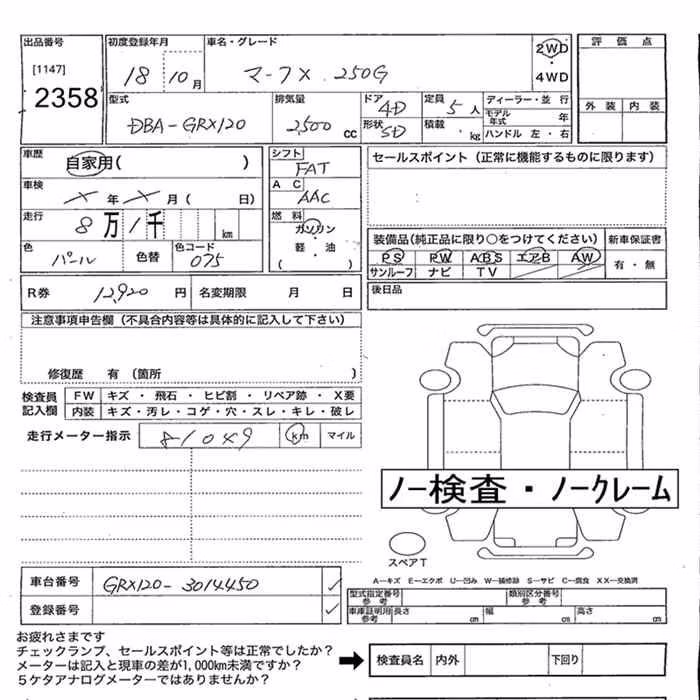 出品番号 初度登録年月 車名・グレード 2WD 評価点
[1147] 18 10月 マークX 250G ・
2358 4WD
型式 排気量 ドア 4D 定員 5人 ディーラー・並行 外装 内装
DBA-GRX120 2,500cc 形状 SD 積載 kg モデル年式 年
ハンドル 左・右
車歴 自家用( ) シフト FAT セールスポイント(正常に機能するものに限ります)
車検 メ年 メ月( 日) AC AAC
走行 8万1千 km 燃料 ガソリン・軽・油
装備品(純正品に限り○をつけてください) 新車保証書
色 パール 色替 色コード 075 PS PW ABS エアB AW 有・無
サンルーフ ナビ TV
R券 12,920円 名変期限 月 日 後日品
注意事項申告欄(不具合内容等は具体的に記入して下さい)
修復歴 有(箇所 )
検査員記入欄 FW キズ・飛石・ヒビ割・リペア跡・X要
内装 キズ・汚レ・コゲ・穴・スレ・キレ・破レ
走行メーター指示 81049 km マイル
ノー検査・ノークレーム
スペアT
A−キズ E−エクボ U−凹み W−補修跡 S−サビ C−腐食 XX−交換済
車台番号 GRX120-3014450 型式指定番号 参考 類別区分番号 参考
登録番号 車庫証明用参考 長さ cm 幅 cm 高さ cm
お疲れさまです
チェックランプ、セールスポイント等は正常でしたか?
メーターは記入と現車の差が1,000km未満ですか? 検査員名 内外 下回り
5ケタアナログメーターではありませんか?